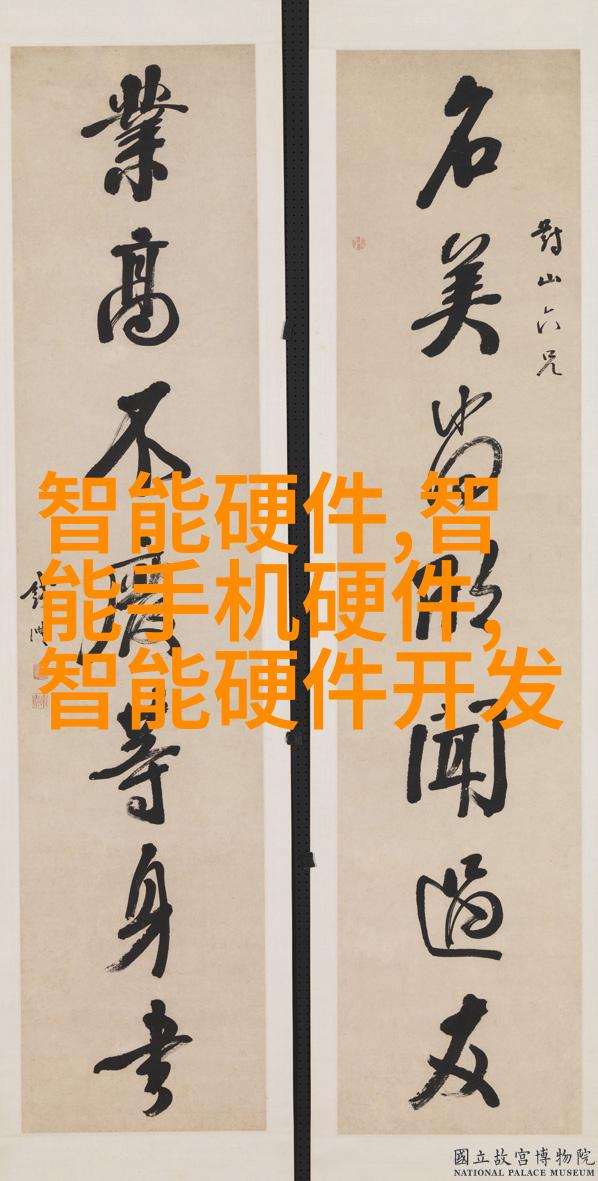 智能硬件,智
能手机硬件,
智能硬件开发
對山六兄
名美尚欣聞過友
業高不廢等身書
國立故宮博物院
NATIONAL PALACE MUSEUM